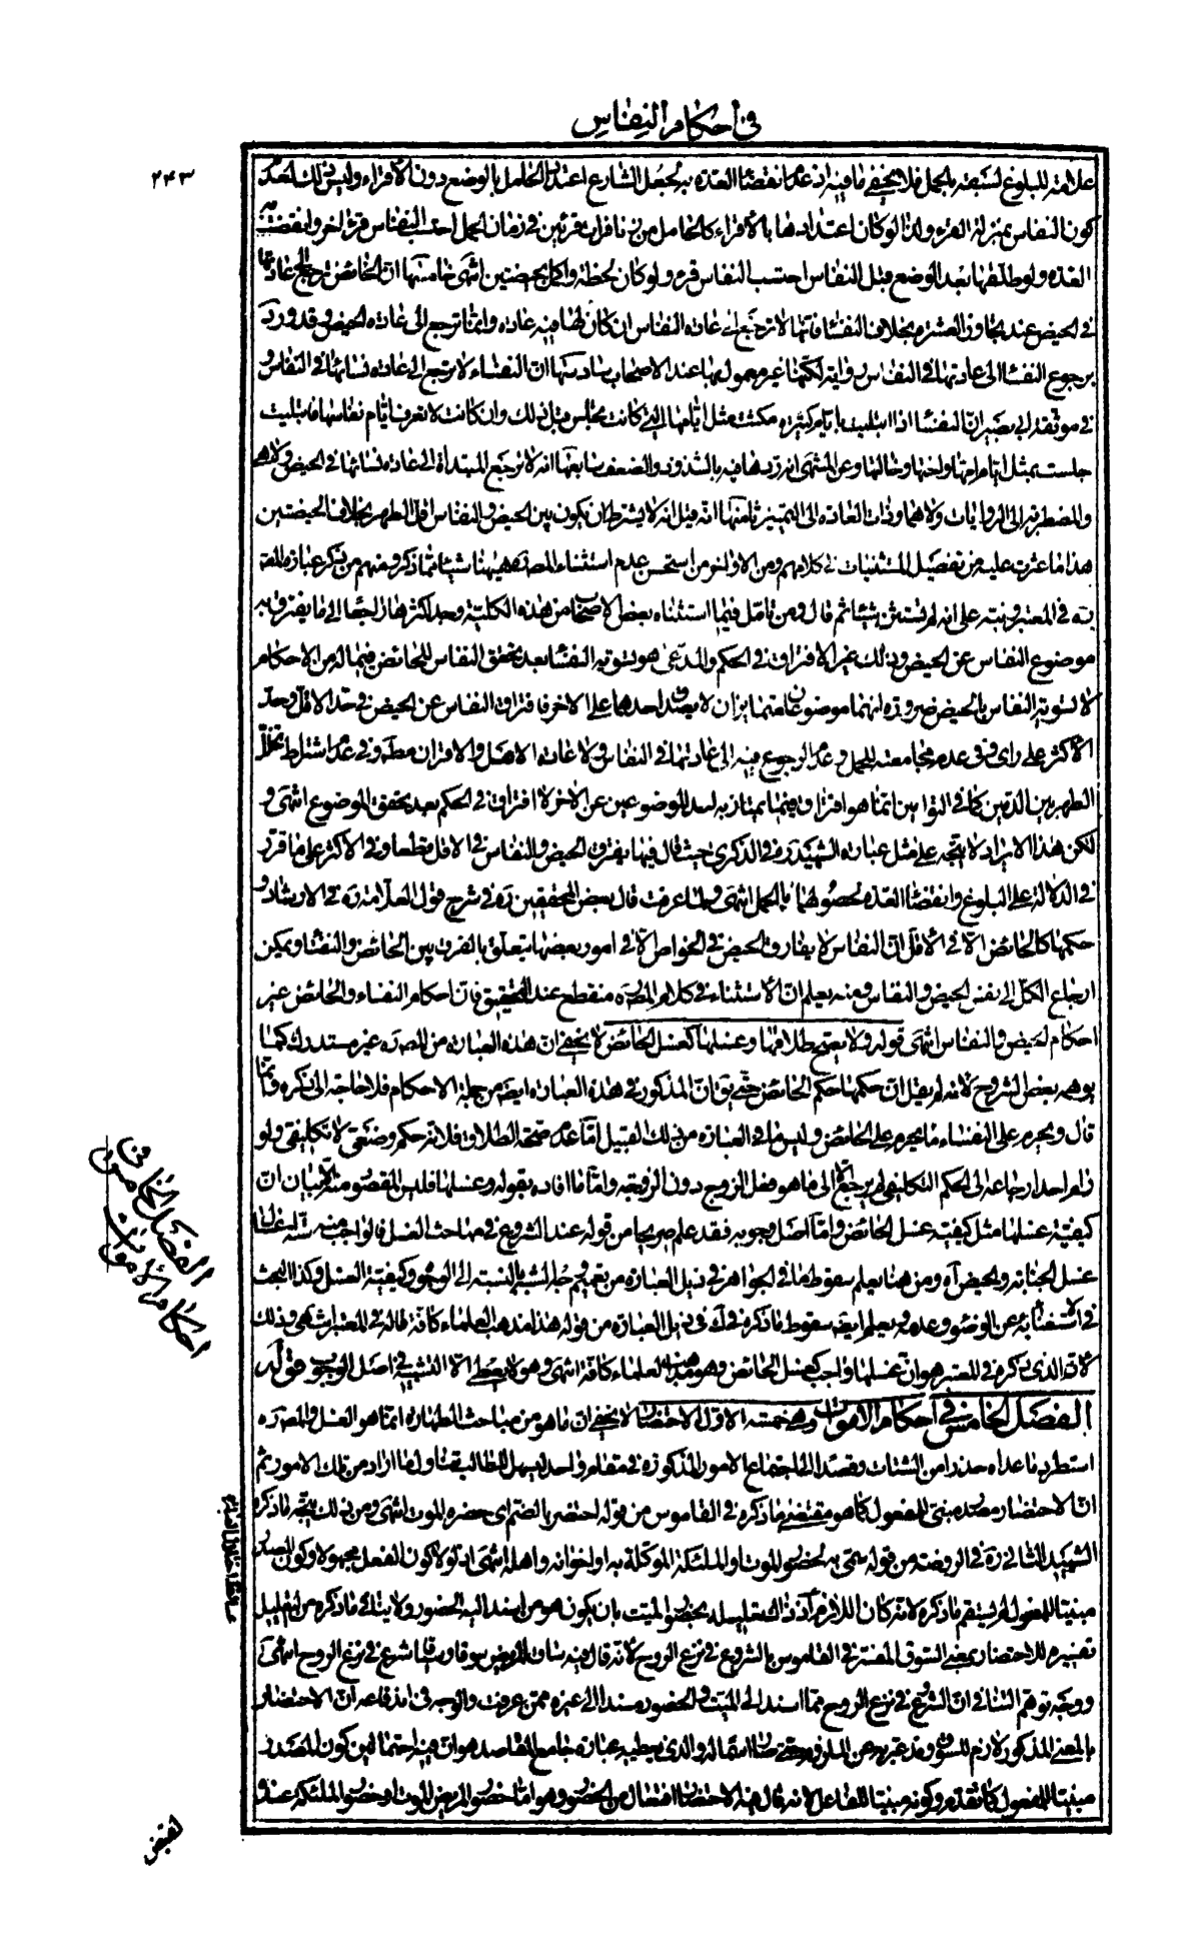 في أحكام النفاس
٢٤٣
علامة للبلوغ لسبقه بالحمل فلا يخفى ما فيه اذ عدم انقضاء العدة به لجعل الشارع اعتداد الحامل بالوضع دون الأقراء وليس ذلك لعدم
كون النفاس بمنزلة القرء ولذا لو كان اعتدادها بالأقراء كالحامل من زنا فرأت قرئين في زمان الحمل احتسب النفاس قرءا اخر وانقضت به
العدة ولو طلقها بعد الوضع قبل النفاس احتسب النفاس قرء ولو كان لحظة واكمل بحيضتين انتهى خامسها ان الحائض ترجع الى عادتها
في الحيض عند تجاوز العشرة بخلاف النفساء فانها لا ترجع الى عادة النفاس ان كان لها فيه عادة وانما ترجع الى عادة الحيض وقد ورد
برجوع النفساء الى عادتها في النفاس رواية لكنها غير معمول بها عند الاصحاب سادسها ان النفساء لا ترجع الى عادة نسائها في النفاس و
في موثقة ابي بصير ان النفساء اذا ابتليت بايام كثيرة مكثت مثل ايامها التي كانت تجلس قبل ذلك وان كانت لا تعرف ايام نفاسها فابتليت
جلست بمثل ايام امها واختها وخالتها وعن المنتهى انه ردها فيه بالشذوذ والضعف سابعها انه لا ترجع المبتدأة الى عادة نسائها في الحيض ولا هي
والمضطربة الى الروايات ولا هما وذات العادة الى التمييز ثامنها انه قيل انه لا يشترط ان يكون بين الحيض والنفاس اقل الطهر بخلاف الحيضتين
هذا ما عثرت عليه من تفصيل المستثنيات في كلامهم ومن الاواخر من استحسن عدم استثناء المص ره هيهنا شيئا مما ذكر ومنهم من ذكر عبارة المص
ره في المعتبر ونبه على انه لم يستثن شيئا ثم قال ومن تامل فيما استثناه بعض الاصحاب من هذه الكلية وجد اكثرها راجعا الى ما يفترق به
موضوع النفاس عن الحيض وذلك غير الافتراق في الحكم والمدعى هو تسوية النفساء بعد تحقق النفاس للحائض فيما لها من الاحكام
لا تسوية النفاس بالحيض ضرورة انهما موضوعان متمايزان لا يصدق احدهما على الاخر فافتراق النفاس عن الحيض في حد الاقل وحد
الأكثر على راى وفي عدم مجامعته للحمل وعدم الرجوع فيه الى عادتها في النفاس ولا عادة الاهل والاقران مطلقا وفي عدم اشتراط تخلل
الطهر بين الدمين كما في التوامين انما هو افتراق فيما يمتاز به احد الموضوعين عن الاخر لا افتراق في الحكم بعد تحقق الموضوع انتهى و
لكن هذا الايراد لا يتجه على مثل عبارة الشهيد ره في الذكرى حيث قال فيها يفترق الحيض والنفاس في الاقل قطعا وفي الاكثر على ما قرر
في الدلالة على البلوغ وانقضاء العدة لحصولهما بالحمل انتهى ولما عرفت قال بعض المحققين ره في شرح قول العلامة ره في الارشاد و
حكمها كالحائض الا في الأقل ان النفاس لا يفارق الحيض في الخواص الا في امور بعضها يتعلق بالفرق بين الحائض والنفساء ويمكن
ارجاع الكل الى نفس الحيض والنفاس ومنه يعلم ان الأستثناء في كلام المص ره منقطع عند التحقيق فان احكام النفساء والحائض غير
احكام الحيض والنفاس انتهى قوله ولا يصح طلاقها وغسلها كغسل الحائض لا يخفى ان هذه العبارة من المص ره غير مستدرك كما
يوهمه بعض الشروح لانه لم يقل ان حكمها حكم الحائض حتى يق ان المذكور في هذه العبارة ايضا من جملة الاحكام فلا حاجة الى ذكره وانما
قال ويحرم على النفساء ما يحرم على الحائض وليس ما في العبارة من ذلك القبيل اما عدم صحة الطلاق فلانه حكم وضعي لا تكليفي ولو
رام احد ارجاعه الى الحكم التكليفي لم يرجع الا الى ما هو فعل الزوج دون الزوجة واما ما افاده بقوله وغسلها فليس المقصود منه الا بيان ان
كيفية غسلها مثل كيفية غسل الحائض واما اصل وجوبه فقد علم صريحا من قوله عند الشروع في مباحث الغسل فالواجب منه ستة اغسال
غسل الجنابة والحيض آه ومن هنا يعلم سقوط ما في الجواهر في ذيل العبارة من تعميم وجه الشبه بالنسبة الى الوجوب وكيفية الغسل وكذا البحث
في الاستغناء به عن الوضوء وعدمه ويعلم ايضا سقوط ما ذكره في ك في ذيل العبارة من قوله هذا مذهب العلماء كافة قاله في المعتبر انتهى وذلك
لأن الذي ذكره في المعتبر هو ان غسلها واجب كغسل الحائض وهو مذهب العلماء كافة انتهى وهو لا يعطى الا التشبيه في اصل الوجوب قوله
الفصل الخامس في أحكام الاموات وهي خمسة الاول الاحتضار لا يخفى ان ما هو من مباحث الطهارة انما هو الغسل والمص ره
استطرد ما عداه حذرا من الشتات وقصدا الى اجتماع الامور المذكورة في مقام واحد ليسهل للطالب تناول ما اراد من تلك الامور ثم
ان الاحتضار مصدر مبنى للمفعول كما هو مقتضى ما ذكره في القاموس من قوله احتضر بالضم اى حضره الموت انتهى ومن ذلك يتجه ما ذكره
الشهيد الثاني ره في الروضة من قوله سمى به لحضور الموت او الملئكة الموكلة به او اخوانه واهله انتهى اذ لو لا كون الفعل مجهولا وكون المصدر
مبنيا للمفعول لم يستقم ما ذكره لانه كان اللازم اذ ذاك تعليله بحضور الميت بان يكون هو من اسند اليه الحضور ولا يتأتى ما ذكره من التعليل
تفسيره للاحتضار بمعنى السوق المفسر في القاموس بالشروع في نزع الروح لانه قال فيه ساق المريض سوقا وسياقا شرع في نزع الروح انتهى
ووجه توهم التنافي ان الشروع في نزع الروح مما اسند الى الميت والحضور مسند الى غيره ممن عرفت والوجه في اندفاعه ان الاحتضار
بالمعنى المذكور لازم للسوق وقد عبر به عن الملزوم حتى صار استماله والذي يعطيه عبارة جامع المقاصد هو ان فيه احتمالين كون المصدر
مبنيا للمفعول كما تقدم وكونه مبنيا للفاعل لانه قال فيه الاحتضار افتعال من الحضور وهو اما حضور المريض الموت او حضور الملئكة عنده
الفصل الخامس في
احكام الاموات
لقبض